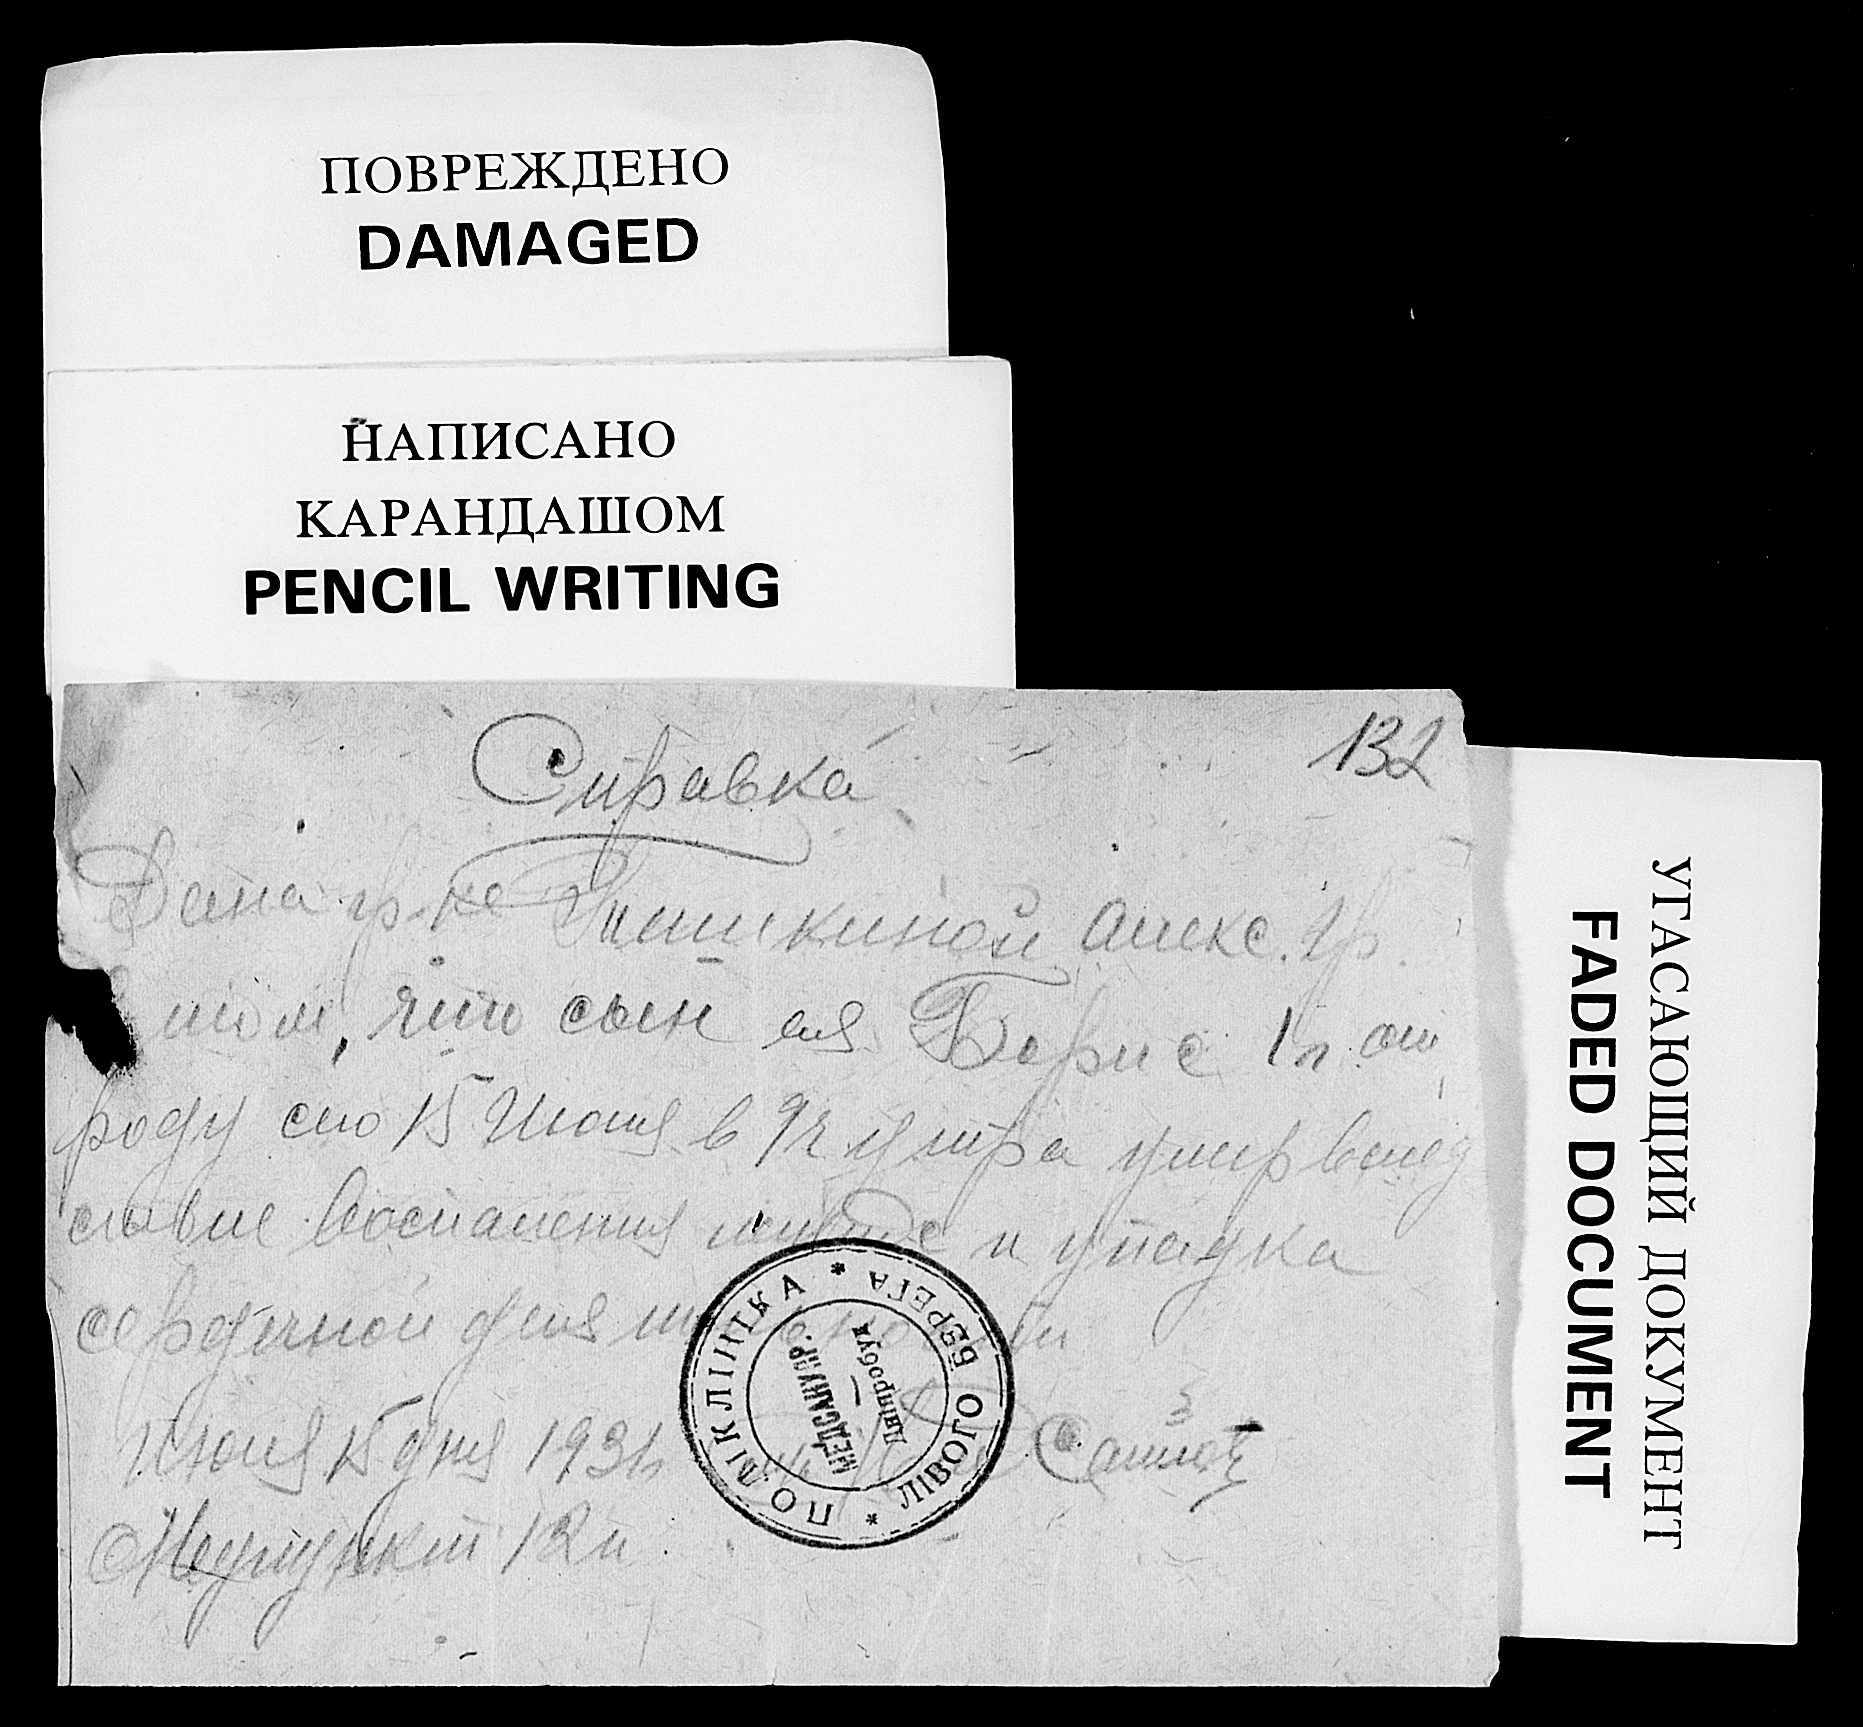 ПОВРЕЖДЕНО
DAMAGED
НАПИСАНО
КАРАНДАШОМ
PENCIL WRITING
132
Справка
Дана гр-ке Тишкиной Алекс. Гр.
том, что сын ея Борис 1 г. от
роду сто 15 Июля в 9 ч утра умер вслед
ствие воспаления и упадка
сердечной деятельности
Июля 15 дня 1931 г.
Медпункт 12
ПОЛІКЛІНІКА * ЛІВОГО БЕРЕГА *
МЕДСАНУПР.
Дніпробуд
УГАСАЮЩИЙ ДОКУМЕНТ
FADED DOCUMENT